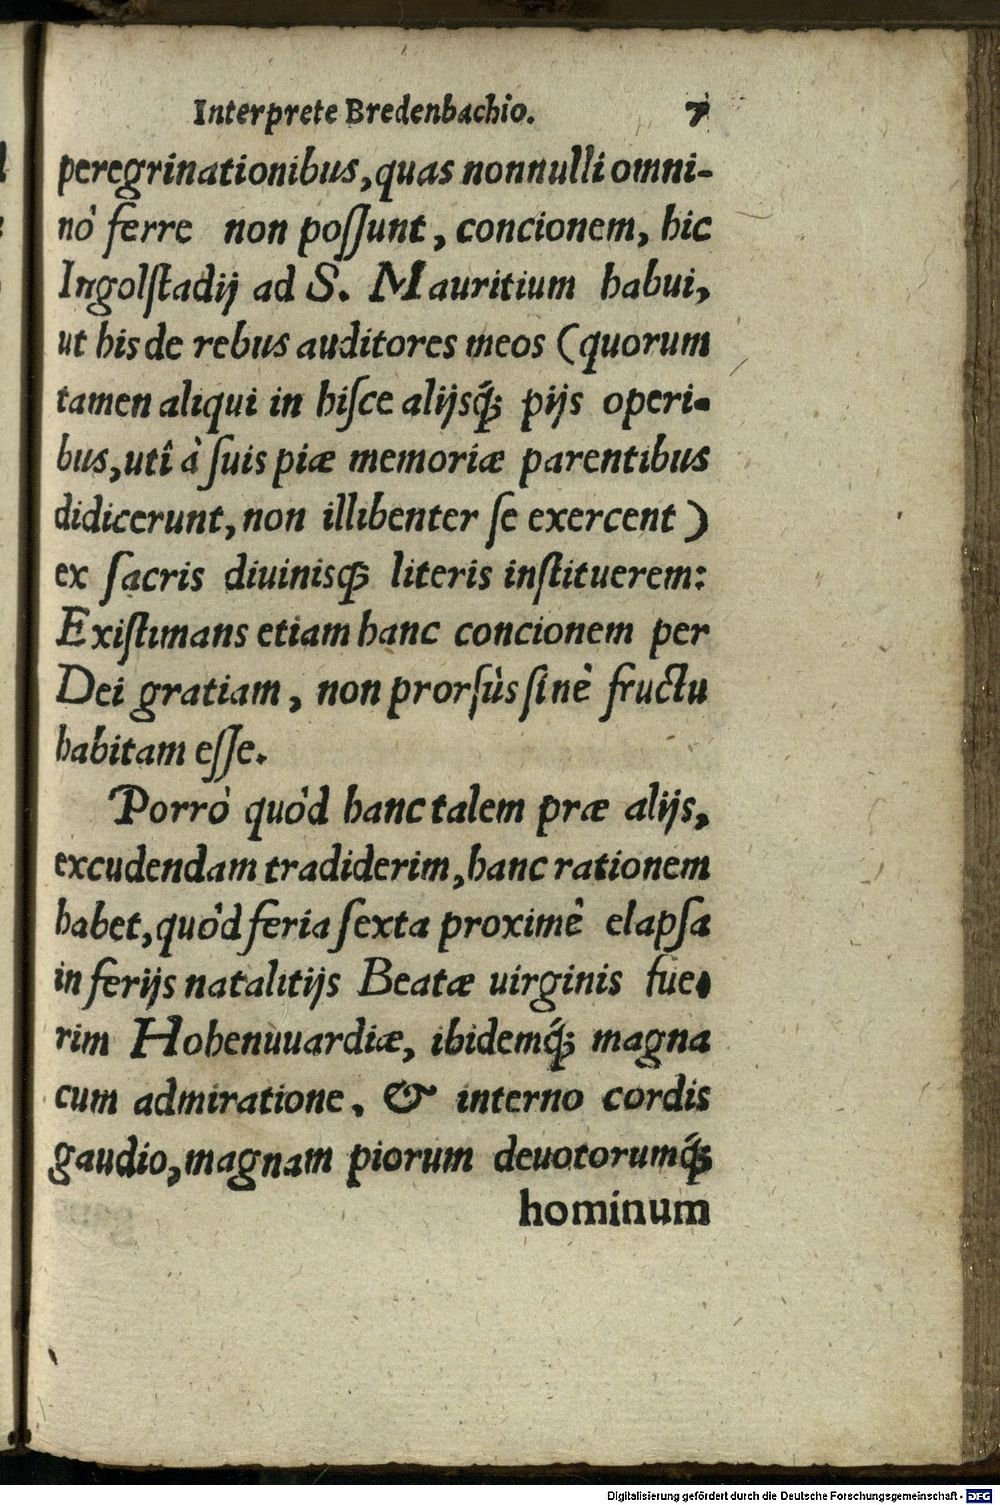 Interprete Bredenbachio. 7
peregrinationibus, quas nonnulli omni-
nò ferre non poſſunt, concionem, hic
Ingolſtadij ad S. Mauritium habui,
ut his de rebus auditores meos (quorum
tamen aliqui in hiſce alijsq́; pijs operi-
bus, utî à ſuis piæ memoriæ parentibus
didicerunt, non illibenter ſe exercent)
ex ſacris diuinisq; literis inſtituerem:
Exiſtimans etiam hanc concionem per
Dei gratiam, non prorſùs ſinè fructu
habitam eſſe.
Porrò quòd hanc talem præ alijs,
excudendam tradiderim, hanc rationem
habet, quòd feria ſexta proximè elapſa
in ferijs natalitijs Beatæ uirginis fue-
rim Hohenuuardiæ, ibidemq́; magna
cum admiratione, & interno cordis
gaudio, magnam piorum deuotorumq́;
hominum
Digitalisierung gefördert durch die Deutsche Forschungsgemeinschaft - DFG